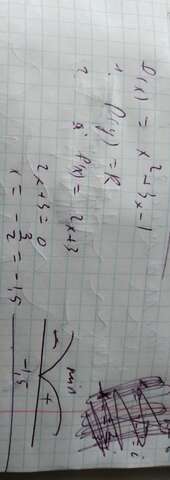 f(x) = x² + 3x - 1
1. D(y) = R
2. f'(x) = 2x + 3
2x + 3 = 0
x = -3/2 = -1,5
- +
-1,5
min